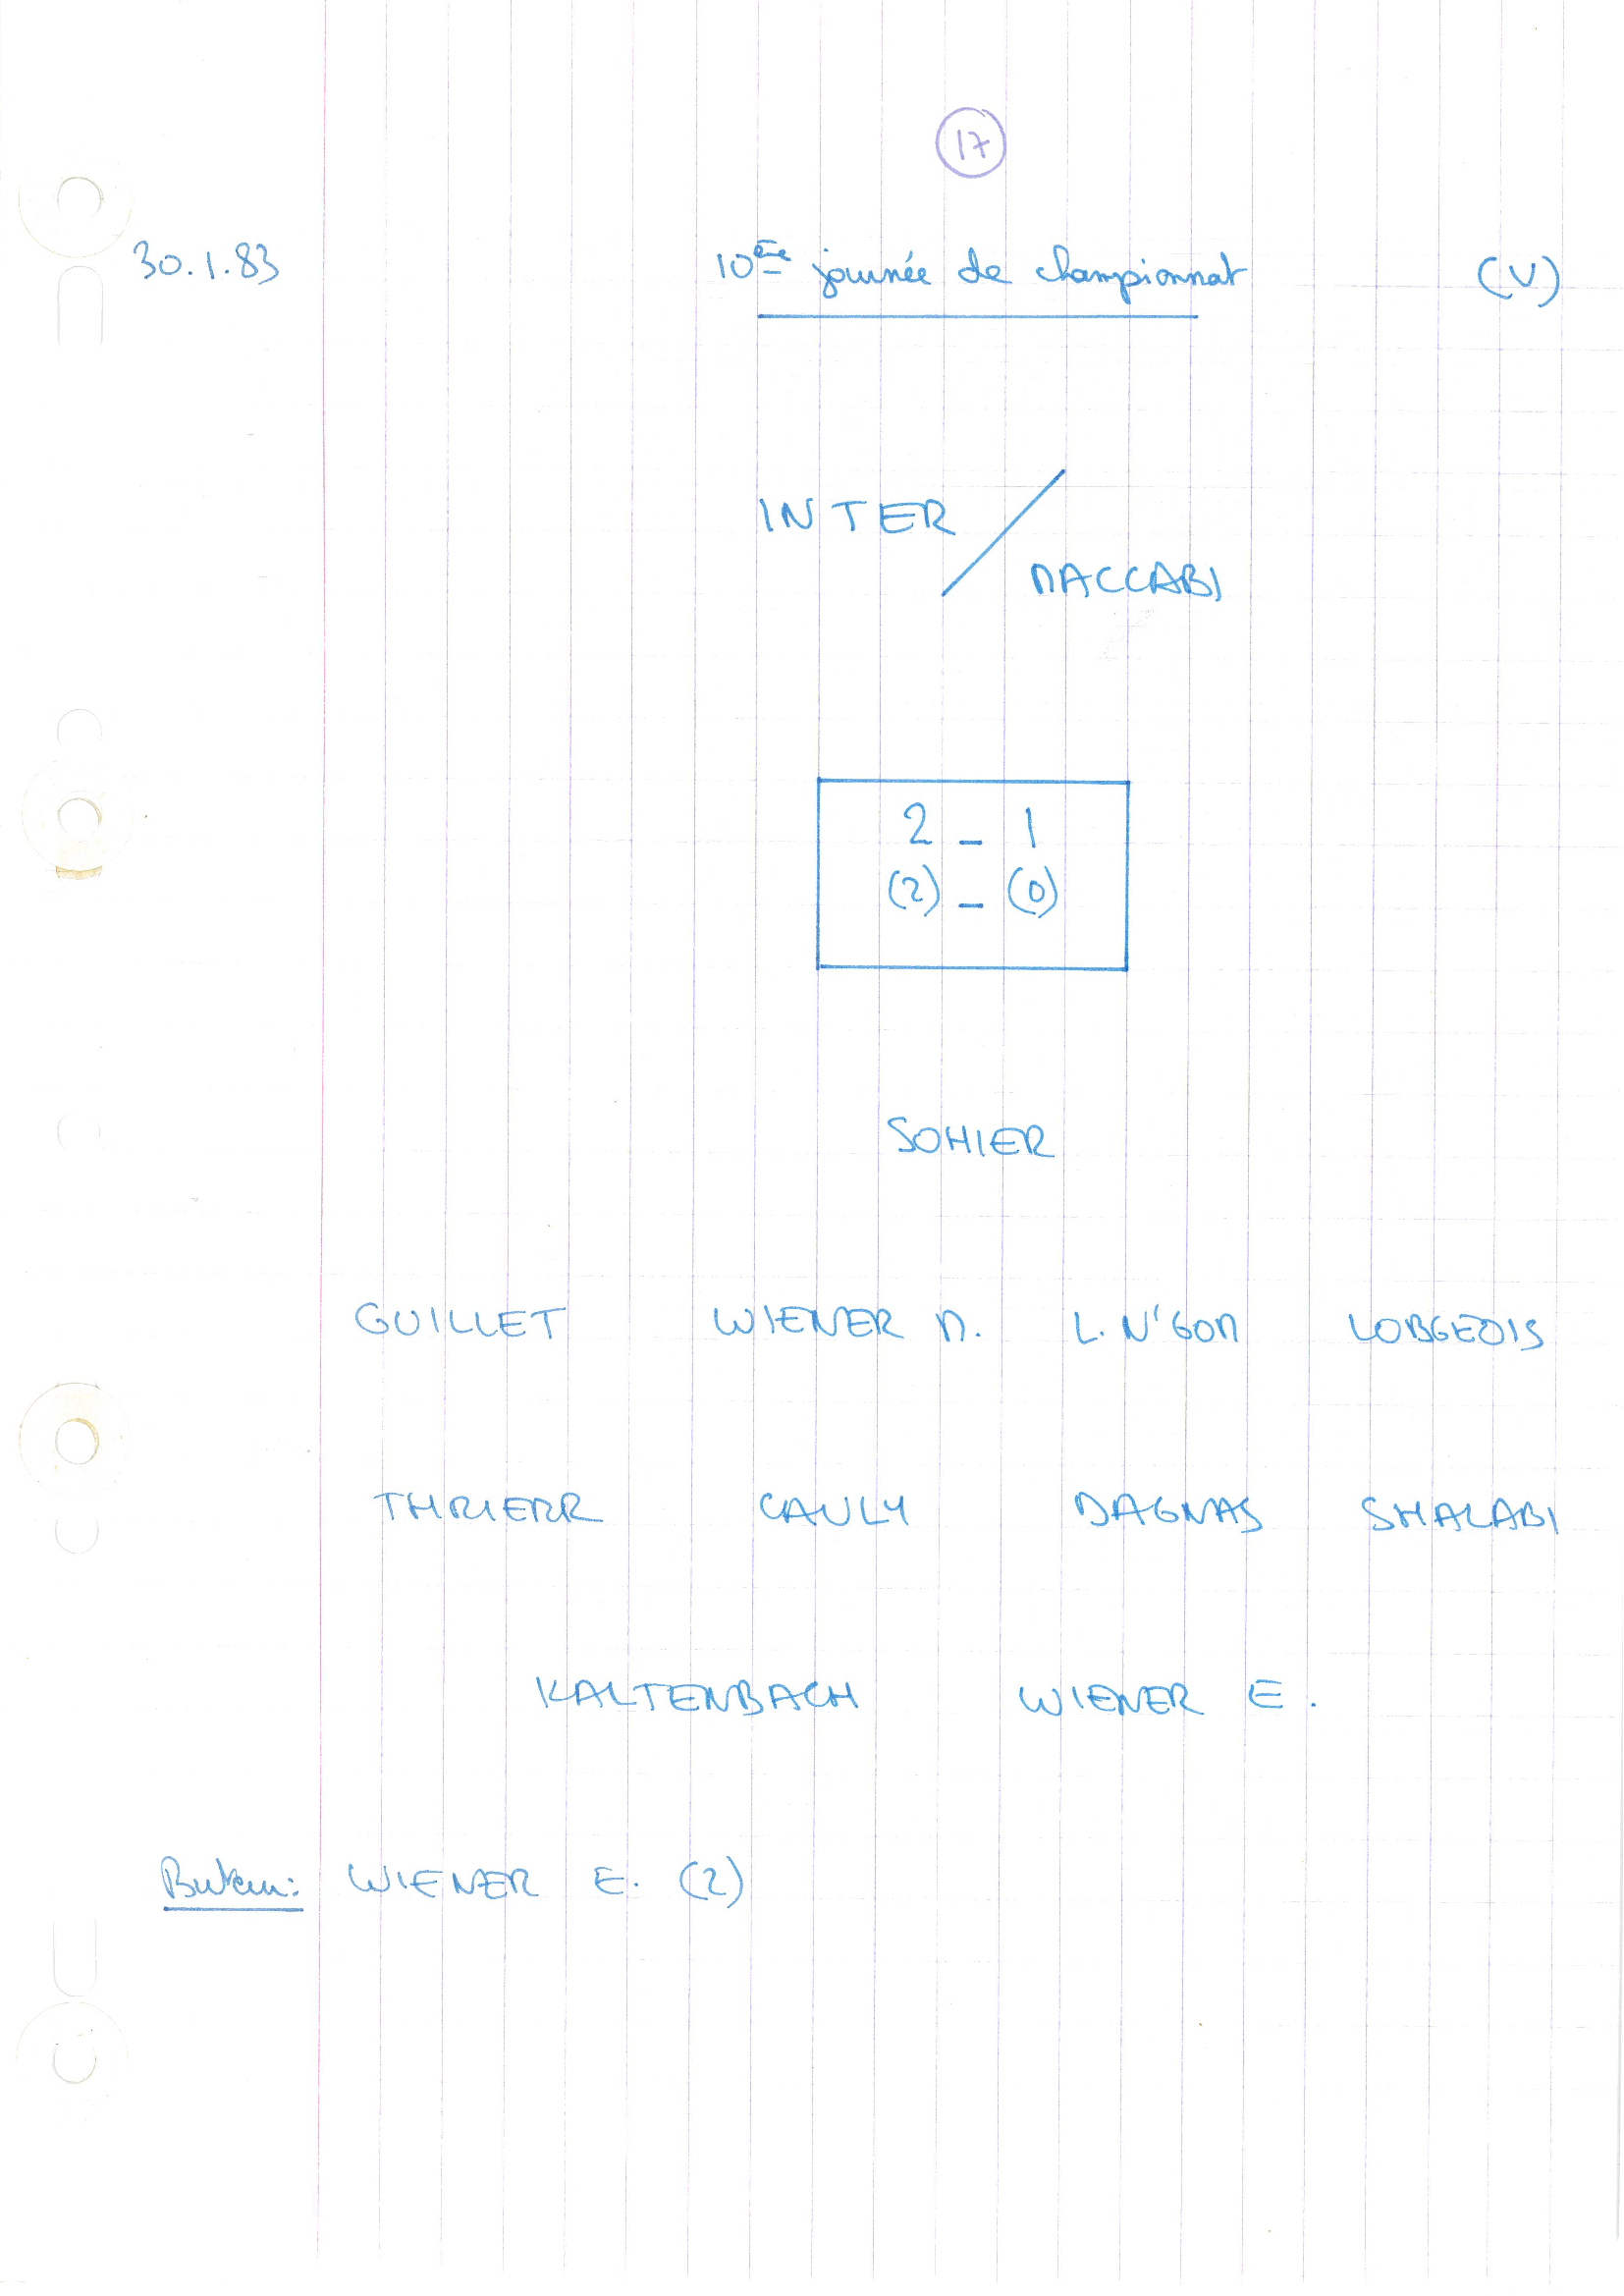 17
30.1.83 10ème journée de championnat (V)
INTER /
MACCABI
2 - 1
(2) - (0)
SOHIER
GUILLET WIENER M. L. N'GOM LOBGEOIS
THRIERR CAULY DAGNAS SHALABI
KALTENBACH WIENER E.
Buteur: WIENER E. (2)